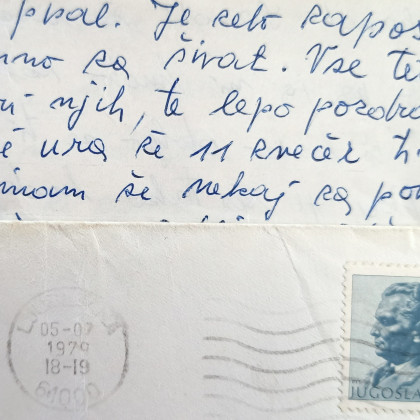 Je zelo zapos
za šivat. Vse te
njih, te lepo pozdra
ura že 11 zvečer
imam še nekaj za po
05-07
1979
18-19
61000
JUGOSLA